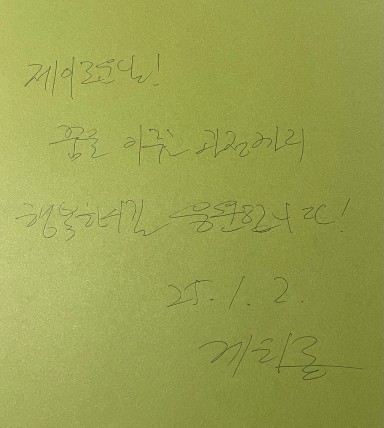 제이크님!
꿈을 이룬 과정까지
행복하시길 응원합니다!
25. 1. 2.